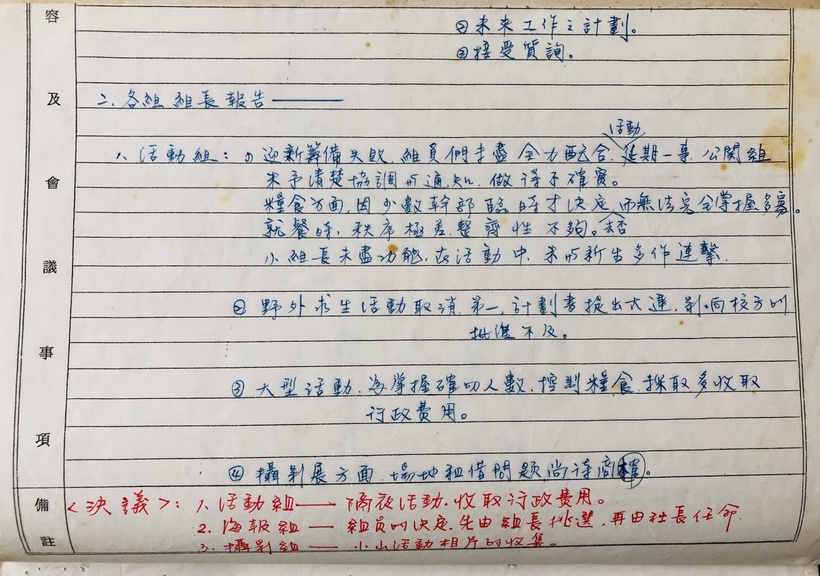 ②未來工作之計劃。
③接受質詢。
二、各組組長報告——
活動
1、活動組：①迎新籌備失敗，組員們未盡全力配合，延期一事，公關組
未予清楚協調所通知，做得不確實。
糧食方面，因少數幹部臨時才決定，而無法完全掌握多寡。
就餐時，秩序極差，整齊性不夠。
小組長未盡功能，在活動中，未與新生多作連繫。
②野外求生活動取消，第一，計劃書提出太遲，影响校方的
批準不及。
③大型活動，為掌握確切人數，控制糧食，採取多收取
行政費用。
④攝影展方面，場地租借問題，尚待商確。
<決議>：1、活動組——隔夜活動，收取行政費用。
2、海報組——組員的決定，先由組長挑選，再由社長任命
3、攝影組——小山活動相片的收集。
容及會議事項
備註